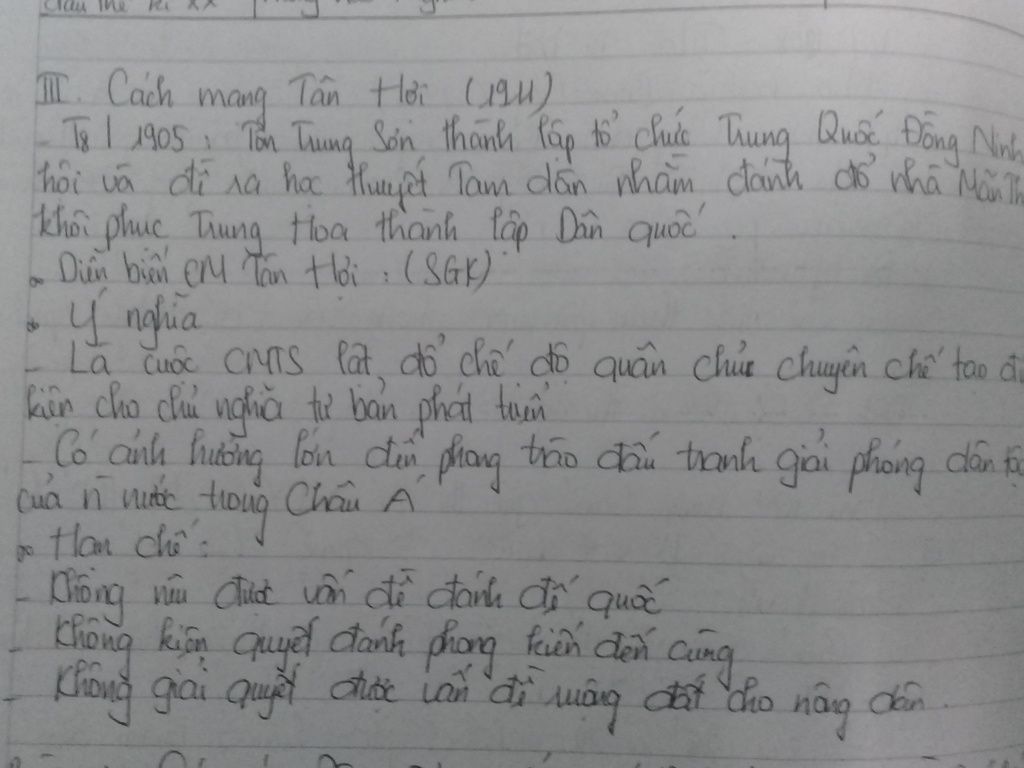 đầu thế kỉ XX
III. Cách mang Tân Hợi (1911)
- T8 / 1905 : Tôn Trung Sơn thành lập tổ chức Trung Quốc Đồng Minh
hội và đề ra học thuyết Tam dân nhằm đánh đổ nhà Mãn Th
khôi phục Trung Hoa thành lập Dân quốc.
Diễn biến CM Tân Hợi : (SGK)
Ý nghĩa
- Là cuộc CMTS lật đổ chế độ quân chủ chuyên chế tạo đi
kiện cho chủ nghĩa tư bản phát triển
- Có ảnh hưởng lớn đến phong trào đấu tranh giải phóng dân tộc
của n nước trong Châu Á
Hạn chế :
- Không nêu được vấn đề đánh đế quốc
- Không kiên quyết đánh phong kiến đến cùng
- Không giải quyết được vấn đề ruộng đất cho nông dân.